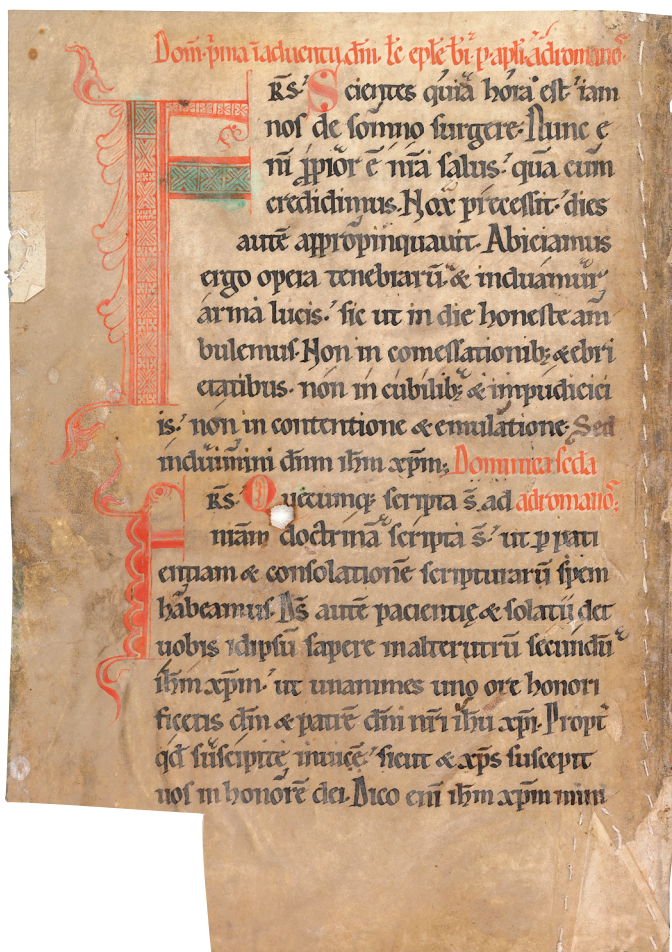 Dom̄. p̄ma ı̄ aduentu dn̄i. lc̄ eplē bı̄ p. apłi ad romanoꝝ.
F R̄S. Scientes quia hora est. iam
nos de somno surgere. Nunc e
ni ꝓpior ē nr̄a salus. qua cum
credidimus. Nox precessit. dies
autē appropinquauit. Abiciamus
ergo opera tenebrarū. & induamur
arma lucis. sic ut in die honeste am
bulemus. Non in comessationibꝫ & ebri
etatibus. non in cubilibꝫ & impudicici
is. non in contentione & emulatione. Sed
induimini dn̄m ihm̄ xp̄m; Dominica scd̄a
F R̄S. Quecumqꝫ scripta s̄. ad ad romanoꝝ.
nram doctrinā scripta s̄. ut ꝑ pati
entiam & consolationē scripturarū spem
habeamus. D̄s autē pacientię & solatii det
uobis idipsū sapere in alterutrū secundū
ihm̄ xp̄m. ut unanimes uno ore honori
ficetis dm̄ & patrē dn̄i nr̄i ihū xp̄i. Propt̄
qd̄ suscipite inuicē. sicut & xp̄s suscepit
uos in honorē dei. Dico enı̄ ihm̄ xp̄m mini